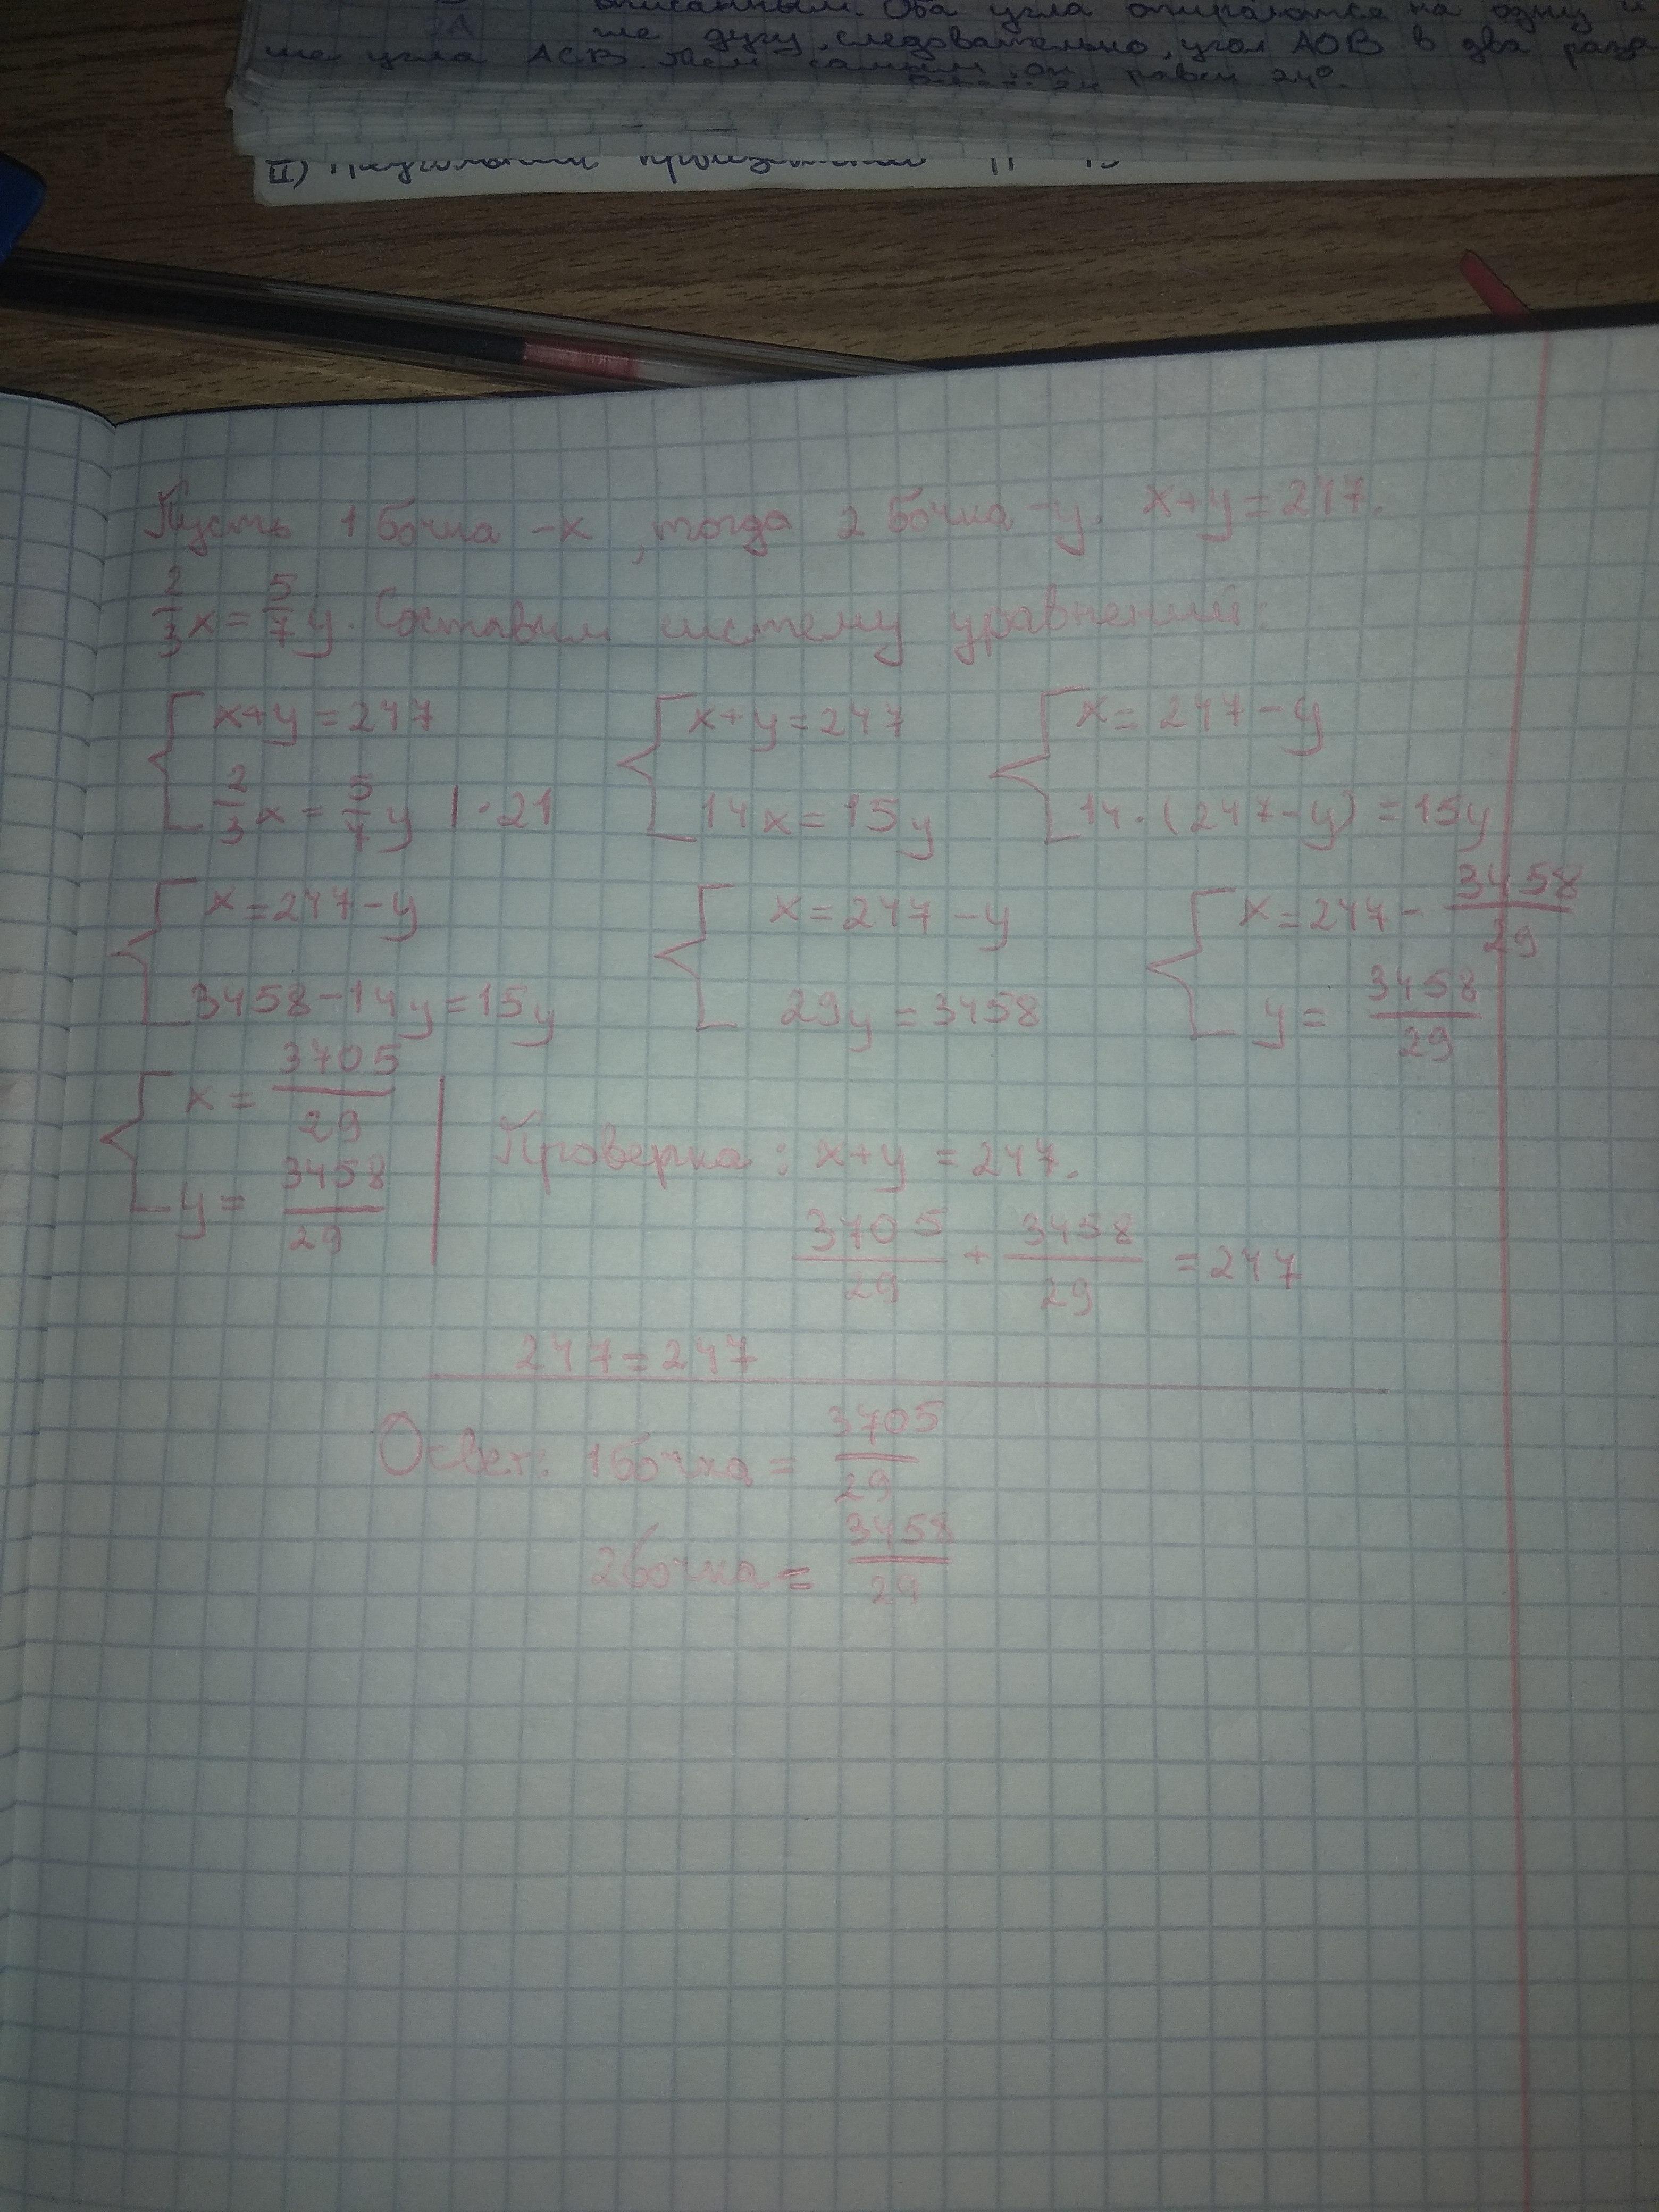 описанным. Оба угла опираются на одну и
же дугу, следовательно, угол АОВ в два раза
же угла АСВ. Тем самым, он равен 24°.
II)
Пусть 1 бочка - x, тогда 2 бочка - y. x+y=247.
2/3 x = 5/7 y. Составим систему уравнений:
{ x+y=247 { x+y=247 { x=247-y
2/3 x = 5/7 y |·21 14x=15y 14·(247-y)=15y
{ x=247-y { x=247-y { x=247-3458/29
3458-14y=15y 29y=3458 y=3458/29
{ x=3705/29
y=3458/29
Проверка: x+y=247.
3705/29 + 3458/29 = 247
247=247
Ответ: 1 бочка = 3705/29
2 бочка = 3458/29